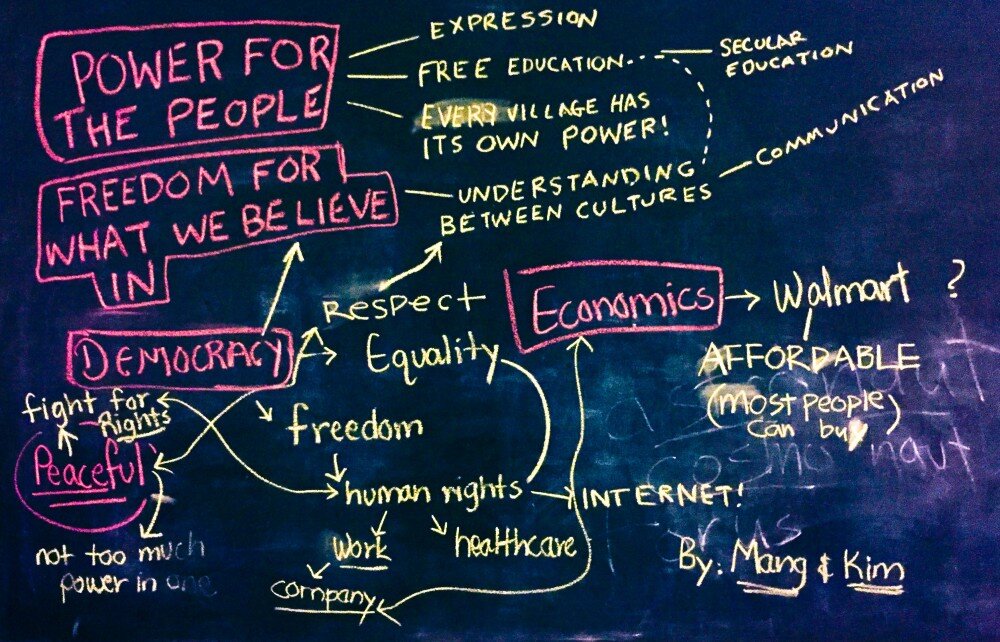 POWER FOR
THE PEOPLE
EXPRESSION
FREE EDUCATION
SECULAR
EDUCATION
EVERY VILLAGE HAS
ITS OWN POWER!
FREEDOM FOR
WHAT WE BELIEVE
IN
UNDERSTANDING
BETWEEN CULTURES
COMMUNICATION
DEMOCRACY
Respect
Equality
Economics
Walmart ?
AFFORDABLE
(most people)
can buy
fight for
Rights
Peaceful
not too much
power in one
freedom
human rights
INTERNET!
work
healthcare
company
astronaut
cosmonaut
By: Mang & Kim